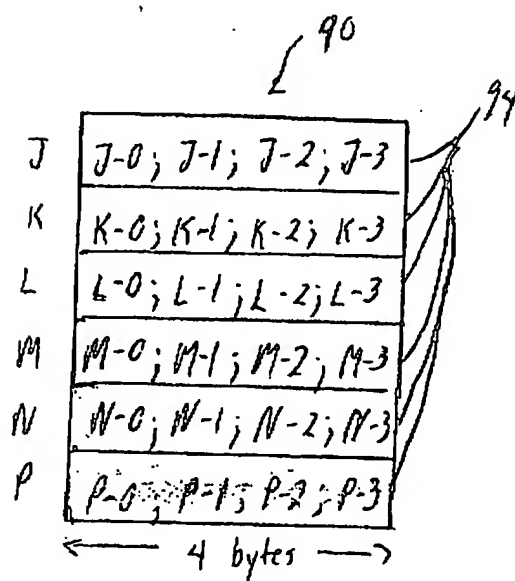 90
94
J J-0; J-1; J-2; J-3
K K-0; K-1; K-2; K-3
L L-0; L-1; L-2; L-3
M M-0; M-1; M-2; M-3
N N-0; N-1; N-2; N-3
P P-0; P-1; P-2; P-3
4 bytes